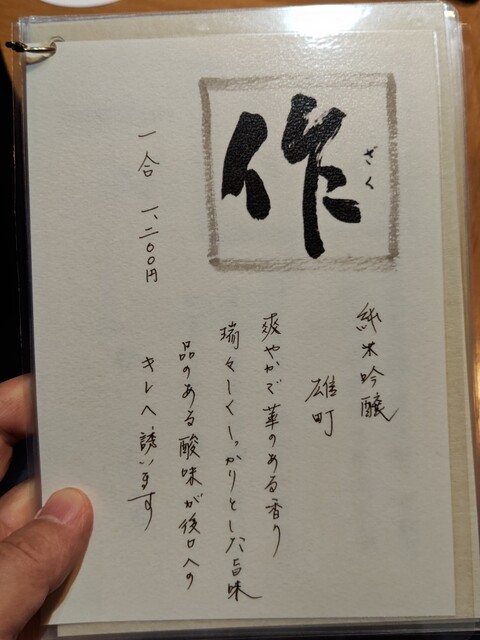 作
ざく
純米吟醸
雄町
爽やかで華のある香り
瑞々しくしっかりとした旨味
品のある酸味が後口への
キレへ誘います
一合 一、二〇〇円